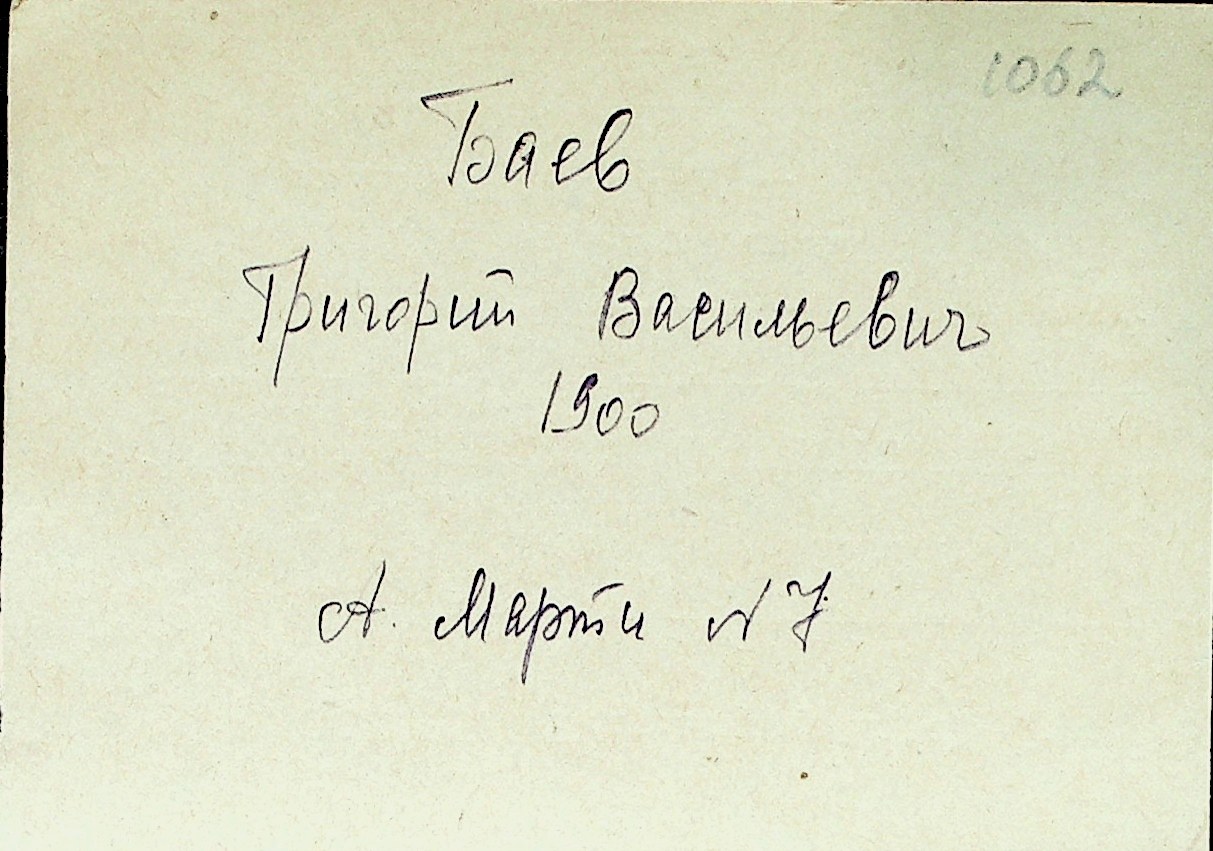 1062
Баев
Григорий Васильевич
1900
А. Марти N 7